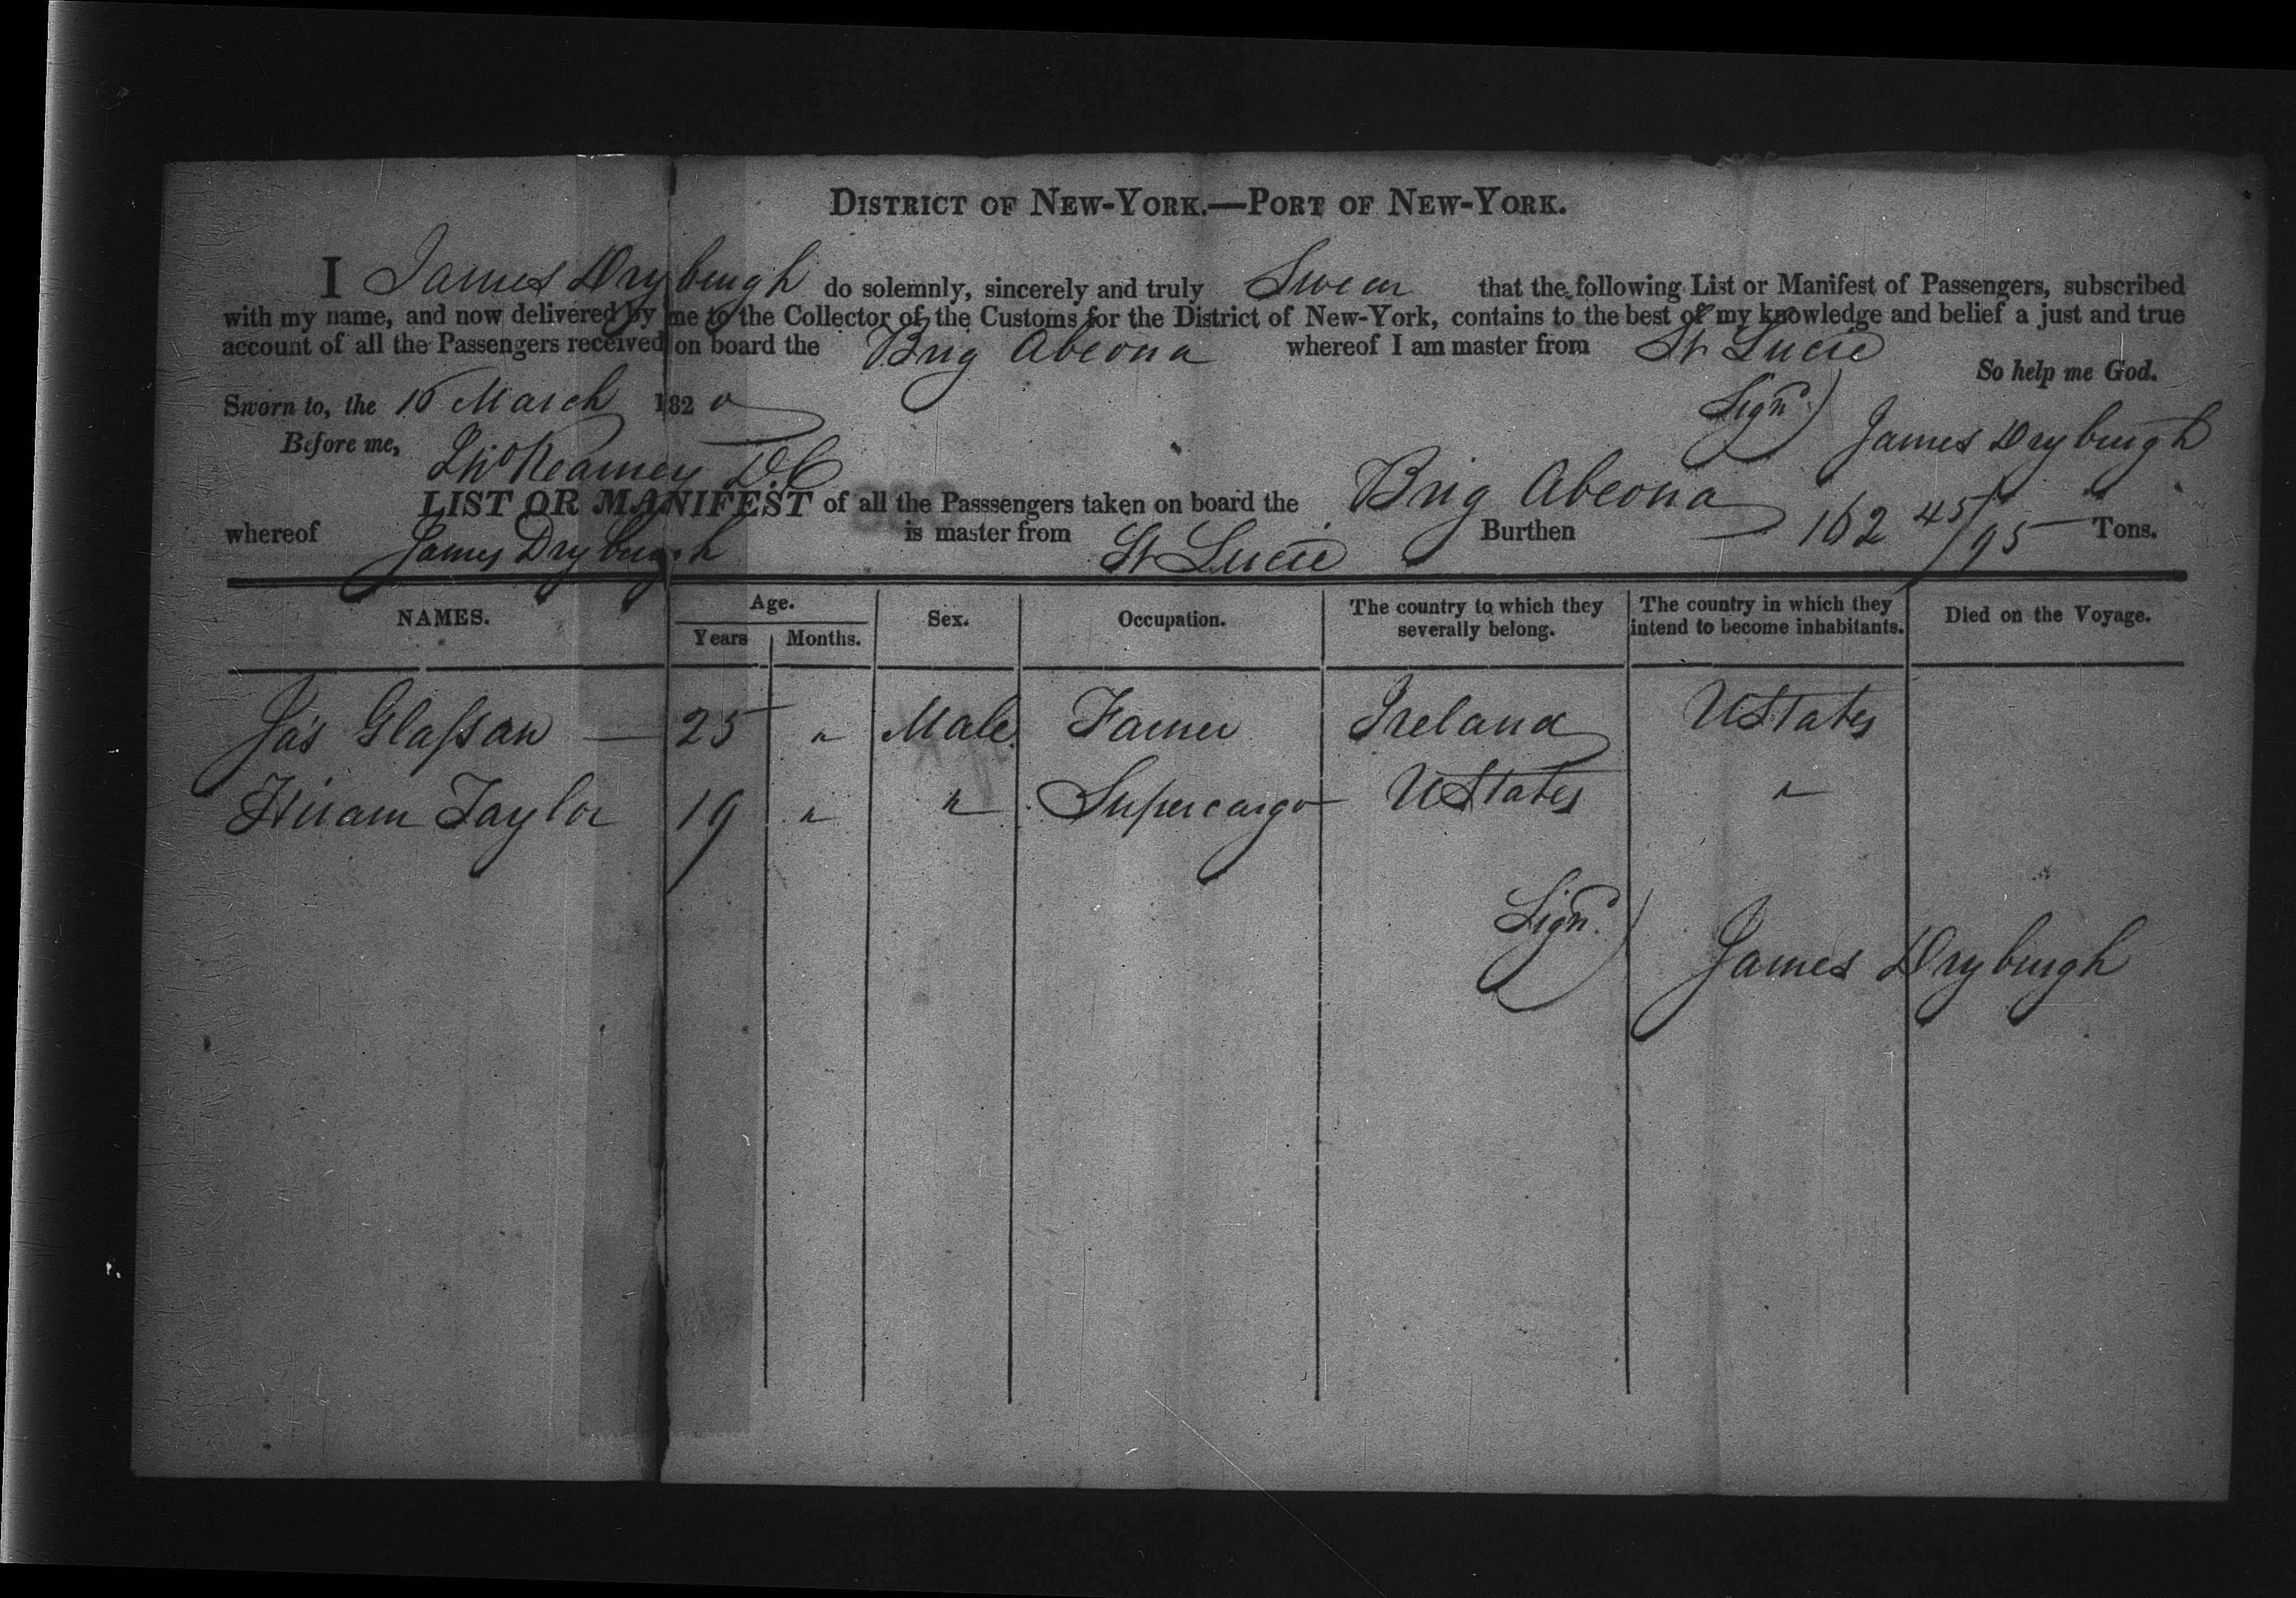 DISTRICT OF NEW-YORK.—PORT OF NEW-YORK.
I James Dryburgh do solemnly, sincerely and truly Swear that the following List or Manifest of Passengers, subscribed
with my name, and now delivered by me to the Collector of the Customs for the District of New-York, contains to the best of my knowledge and belief a just and true
account of all the Passengers received on board the Brig Abeona whereof I am master from St Lucie
So help me God.
Sworn to, the 16 March 1820
Signd) James Dryburgh
Before me, Jno Kearney DC
LIST OR MANIFEST of all the Passsengers taken on board the Brig Abeona
whereof James Dryburgh is master from St Lucie Burthen 162 45/95 Tons.
NAMES. Age. Sex. Occupation. The country to which they severally belong. The country in which they intend to become inhabitants. Died on the Voyage.
Years Months.
Jas Glassan — 25 " Male Farmer Ireland UStates
Hiram Taylor 19 " " Supercargo UStates "
Signd) James Dryburgh